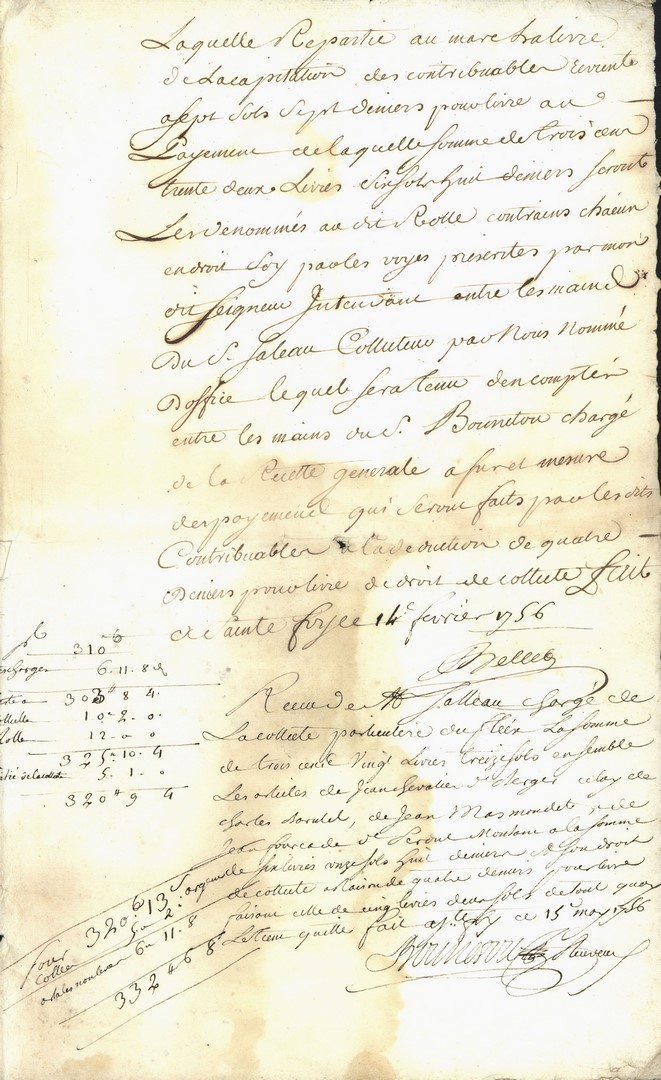 Laquelle Repartie au marc la livre
de Lacapitation des contribuables Revient
a sept sols sept deniers pour livre au
Payement de laquelle somme de trois cens
trente deux Livres six sols huit deniers seront
Les denommés au dit Rolle contrains chacun
en droit soy par les voyes prescrites par mon
dit seigneur Intendant entre les mains
Du S. Saleau Collecteur par Nous Nommé
Doffice lequel sera tenu den compter
entre les mains du S. chargé
de la Recette generale a fur et mesure
des payemens qui seront faits par les dits
Contribuables a la deduction de quatre
Deniers pour livre de droit de collecte Fait
a Sainte foy ce 14e fevrier 1756
310
charges 6. 11. 8
303 8 4.
Collecte 10. 2. 0.
Rolle 12. 0 0
325. 10. 4
5. 1. 0
320 9 4
Receu de Mr Salleau chargé de
La collecte particuliere La somme
de trois cent Vingt Livres treize sols ensemble
Les articles de Jean chevalier Sr celay de
charles de Jean Masmondet de
Jean fourcade Sr Montant a la somme
de six livres onze sols huit deniers et son droit
de collecte a raison de quatre deniers pour livre
faisant celle de cinq livres deux sols de tout quoy
Le tiens quitte fait a Ste foy ce 15e may 1756
Pour 320. 13 s argent
Collecte 5. 2.
6. 11. 8
332 6 8